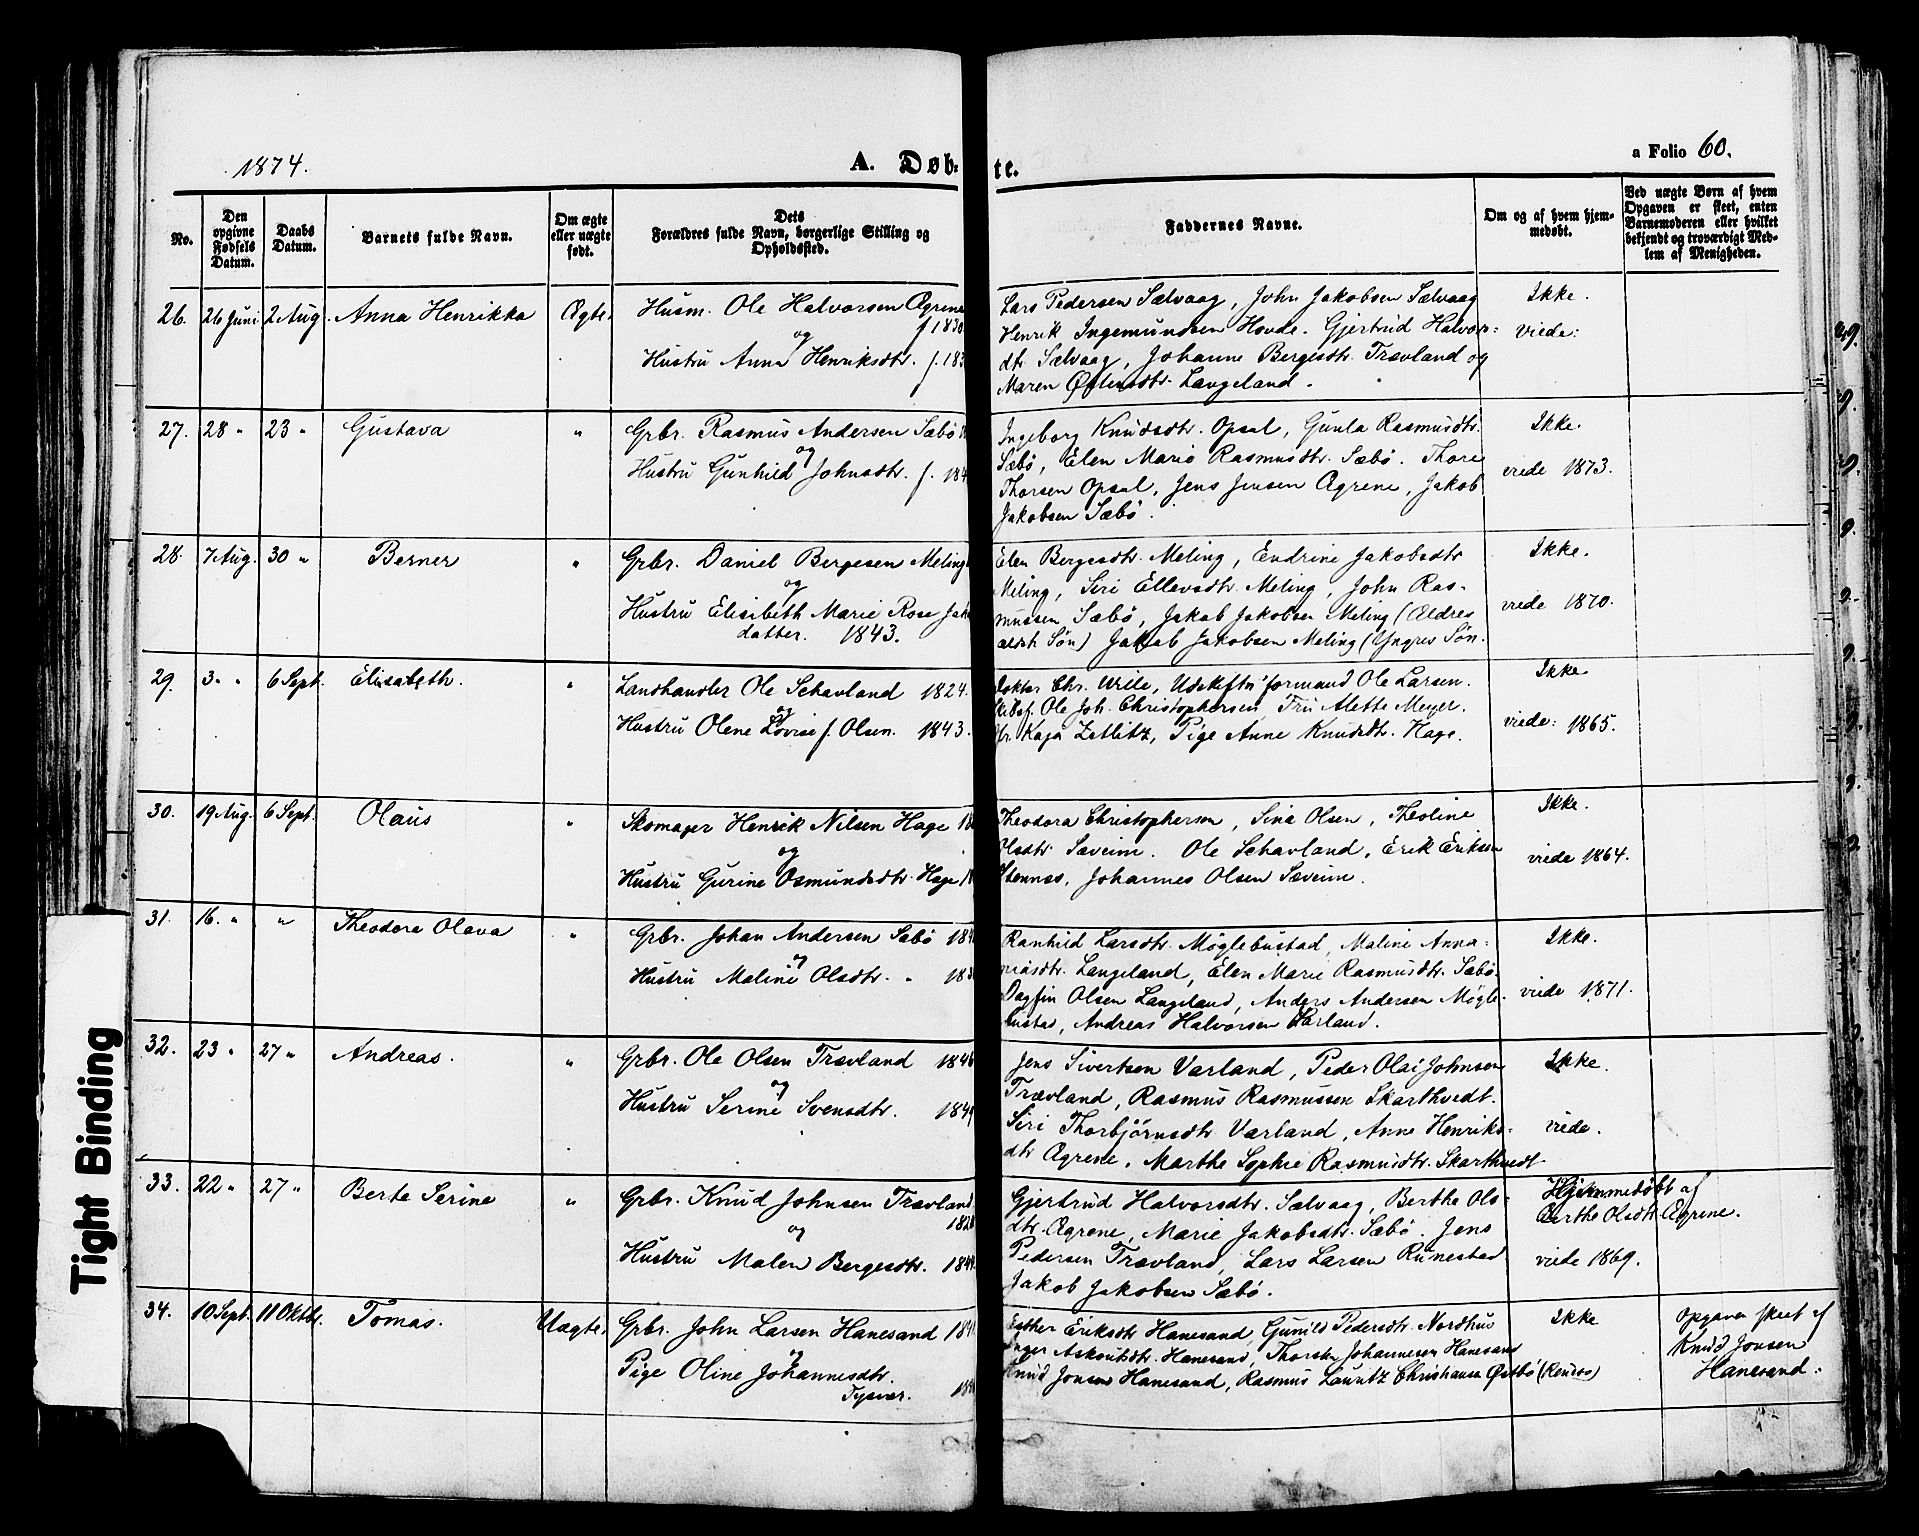 1874.
A. Døb-
te.
a Folio 60.
No.
Den opgivne Fødsels Datum.
Daabs Datum.
Barnets fulde Navn.
Om ægte eller uægte født.
Dets
Forældres fulde Navn, borgerlige Stilling og
Opholdssted.
Faddernes Navne.
Om og af hvem hjem-
medøbt.
Ved uægte Børn af hvem
Opgaven er skeet, enten
Barnemoderen eller hvilket
bekjendt og troværdigt Med-
lem af Menigheden.
26. 26 Juni 2 Aug. Anna Henrikka Ægte.
Husm. Ole Halvorsen Ægrene
f 1830
og
Hustru Anna Henriksdtr. f. 183
Lars Pedersen Sælvaag, John Jakobsen Sælvaag
Henrik Ingemundsen Hovde. Gjertrud Halvor-
dtr. Sælvaag, Johanne Bergesdtr. Trævland og
Maren Østensdtr. Langeland.
Ikke.
viede:
27. 28 " 23 " Gustava "
Grbr. Rasmus Andersen Sæbø
og
Hustru Gunhild Johnsdtr. f. 184
Ingeborg Knudsdtr. Opsal, Gunla Rasmusdtr.
Sæbø, Elen Marie Rasmusdtr. Sæbø. Thore
Thorsen Opsal, Jens Jensen Ægrene, Jakob
Jakobsen Sæbø.
Ikke.
viede 1873.
28. 7 Aug. 30 " Berner "
Grbr. Daniel Bergesen Meling
og
Hustru Elisibeth Marie Rose Jako
datter. 1843.
Elen Bergesdtr. Meling, Endrine Jakobsdtr
Meling, Siri Ellevsdtr. Meling, John Ras-
mussen Sæbø, Jakob Jakobsen Meling (Ældres
ældste Søn) Jakob Jakobsen Meling (Yngres Søn.
Ikke.
viede 1870.
29. 3 " " 6 Sept. Elisabeth. "
Landhandler Ole Schavland 1824.
og
Hustru Olene Lovise f. Olsen. 1843.
Doktor Chr. Wille, Udskiftn. formand Ole Larsen.
Skibsf. Ole Joh. Christophersen, Fru Alette Meyer.
Fr. Kaja Zetlitz, Pige Anne Knudsdtr. Hage.
Ikke
viede: 1865.
30. 19 Aug. 6 Sept. Olaus "
Skomager Henrik Nilsen Hage 18
og
Hustru Gurine Osmundsdtr. Hage 1
Theodora Christophersen, Sina Olsen, Theoline
Olsdtr. Sæveim. Ole Schavland, Erik Eriksen
Stennæs, Johannes Olsen Sæveim.
Ikke.
viede 1864.
31. 16. " " Theodora Olava "
Grbr. Johan Andersen Sæbø 184
og
Hustru Maline Olsdtr. " 183
Ranhild Larsdtr. Møglebustad, Maline Anna-
niasdtr. Langeland, Elen Marie Rasmusdtr. Sæbø.
Dagfin Olsen Langeland, Anders Andersen Møgle-
bustad, Andreas Halvorsen Harland.
Ikke.
viede 1871.
32. 23 " 27 " Andreas. "
Grbr. Ole Olsen Trævland 1846
og
Hustru Serine Svensdtr. 184
Jens Sivertsen Varland, Peder Olai Johnsen
Trævland, Rasmus Rasmussen Skarthvedt.
Siri Thorbjørnsdtr Varland, Anne Henriks-
dtr Ægrene, Marthe Sophie Rasmusdtr. Skarthvedt
Ikke.
viede.
33. 22 " 27 " Berte Serine "
Grbr. Knud Johnsen Trævland
1828
og
Hustru Malen Bergesdtr. 184
Gjertrud Halvorsdtr. Sælvaag, Berthe Ols-
dtr. Ægrene, Marie Jakobsdtr. Sæbø. Jens
Pedersen Trævland, Lars Larsen Runestad
Jakob Jakobsen Sæbø.
Hjemmedøbt af
Berthe Olsdtr Ægrene.
viede 1869.
34. 10 Sept. 11 Oktbr. Tomas. Uægte.
Grbr. John Larsen Hanesand 184
og
Pige Oline Johannesdtr.
Tysvær. 184
Esther Eriksdtr Hanesand, Gunild Pedersdtr. Nordhus
Inger Askoutsdtr. Hanesand, Thorsten Johannesen Hanesand
Knud Jonsen Hanesand, Rasmus Lauritz Christiansen Østbø (Rennes)
Ikke
Opgaven skeet af
Knud Jonsen
Hanesand.
Tight Binding